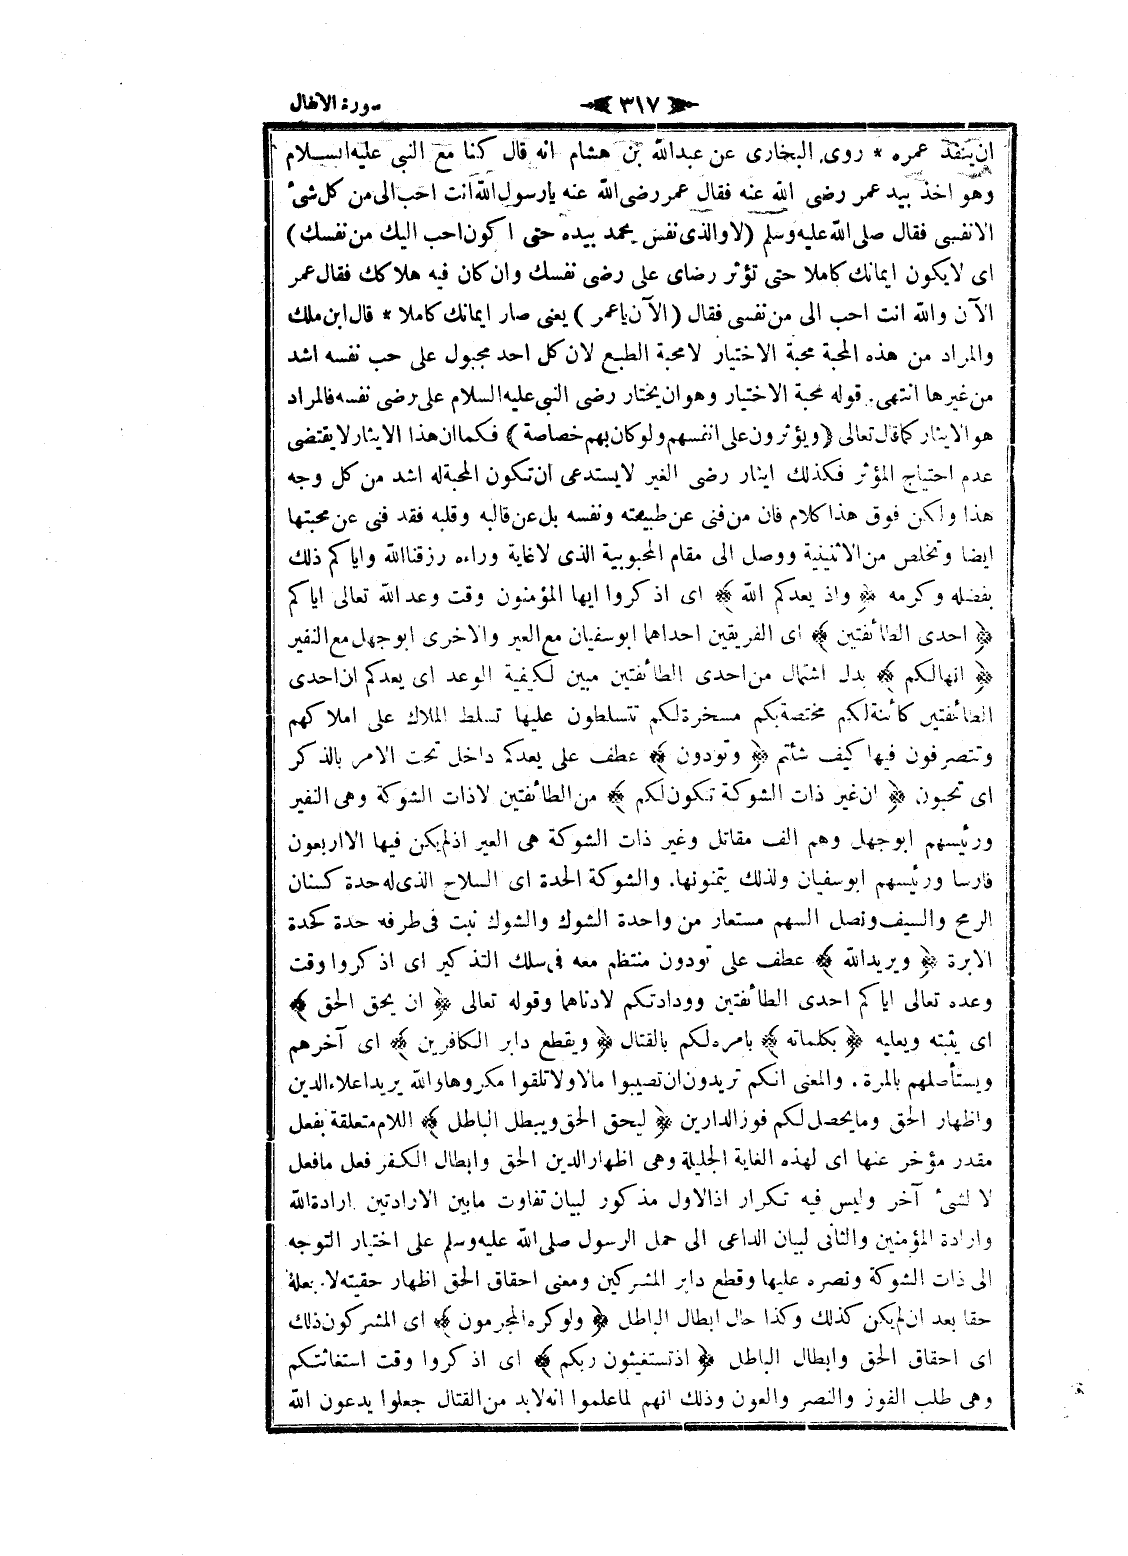 سورة الانفال
٣١٧
ان ينفد عمره * روى البخارى عن عبدالله بن هشام انه قال كنا مع النبى عليه السلام
وهو اخذ بيد عمر رضى الله عنه فقال عمر رضى الله عنه يارسول الله انت احب الى من كل شئ
الانفسى فقال صلى الله عليه وسلم (لا والذى نفس محمد بيده حتى اكون احب اليك من نفسك)
اى لايكون ايمانك كاملا حتى تؤثر رضاى على رضى نفسك وان كان فيه هلاكك فقال عمر
الآن والله انت احب الى من نفسى فقال (الآن ياعمر) يعنى صار ايمانك كاملا * قال ابن ملك
والمراد من هذه المحبة محبة الاختيار لامحبة الطبع لان كل احد مجبول على حب نفسه اشد
من غيرها انتهى. قوله محبة الاختيار وهو ان يختار رضى النبى عليه السلام على رضى نفسه فالمراد
هو الايثار كما قال تعالى (ويؤثرون على انفسهم ولو كان بهم خصاصة) فكما ان هذا الايثار لا يقتضى
عدم احتياج المؤثر فكذلك ايثار رضى الغير لايستدعى ان تكون المحبة له اشد من كل وجه
هذا ولكن فوق هذا كلام فان من فنى عن طبيعته ونفسه بل عن قالبه وقلبه فقد فنى عن محبتها
ايضا وتخلص من الاثنينية ووصل الى مقام المحبوبية الذى لاغاية وراءه رزقنا الله واياكم ذلك
بفضله وكرمه ﴿ واذ يعدكم الله ﴾ اى اذكروا ايها المؤمنون وقت وعد الله تعالى اياكم
﴿ احدى الطائفتين ﴾ اى الفريقين احداهما ابوسفيان مع العير والاخرى ابوجهل مع النفير
﴿ انهالكم ﴾ بدل اشتمال من احدى الطائفتين مبين لكيفية الوعد اى يعدكم ان احدى
الطائفتين كائنة لكم مختصة بكم مسخرة لكم تتسلطون عليها تسلط الملاك على املاكهم
وتتصرفون فيها كيف شئتم ﴿ وتودون ﴾ عطف على يعدكم داخل تحت الامر بالذكر
اى تحبون ﴿ ان غير ذات الشوكة تكون لكم ﴾ من الطائفتين لاذات الشوكة وهى النفير
ورئيسهم ابوجهل وهم الف مقاتل وغير ذات الشوكة هى العير اذ لم يكن فيها الا اربعون
فارسا ورئيسهم ابوسفيان ولذلك يتمنونها. والشوكة الحدة اى السلاح الذى له حدة كسنان
الرمح والسيف ونصل السهم مستعار من واحدة الشوك والشوك نبت فى طرفه حدة كحدة
الابرة ﴿ ويريد الله ﴾ عطف على تودون منتظم معه فى سلك التذكير اى اذكروا وقت
وعده تعالى اياكم احدى الطائفتين وودادتكم لادناهما وقوله تعالى ﴿ ان يحق الحق ﴾
اى يثبته ويعليه ﴿ بكلماته ﴾ بامره لكم بالقتال ﴿ ويقطع دابر الكافرين ﴾ اى آخرهم
ويستأصلهم بالمرة. والمعنى انكم تريدون ان تصيبوا مالا ولا تلقوا مكروها والله يريد اعلاء الدين
واظهار الحق وما يحصل لكم فوز الدارين ﴿ ليحق الحق ويبطل الباطل ﴾ اللام متعلقة بفعل
مقدر مؤخر عنها اى لهذه الغاية الجليلة وهى اظهار الدين الحق وابطال الكفر فعل مافعل
لا لشئ آخر وليس فيه تكرار اذ الاول مذكور لبيان تفاوت مابين الارادتين ارادة الله
وارادة المؤمنين والثانى لبيان الداعى الى حمل الرسول صلى الله عليه وسلم على اختيار التوجه
الى ذات الشوكة ونصره عليها وقطع دابر المشركين ومعنى احقاق الحق اظهار حقيته لا بعلة
حقا بعد ان لم يكن كذلك وكذا حال ابطال الباطل ﴿ ولو كره المجرمون ﴾ اى المشركون ذلك
اى احقاق الحق وابطال الباطل ﴿ اذ تستغيثون ربكم ﴾ اى اذكروا وقت استغاثتكم
وهى طلب الفوز والنصر والعون وذلك انهم لما علموا انه لابد من القتال جعلوا يدعون الله